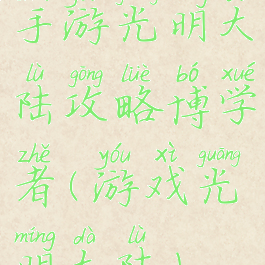 手游光明大
lù gòng lüè bó xué
陆攻略博学
zhě yóu xì guāng
者(游戏光
míng dà lù
明大陆)